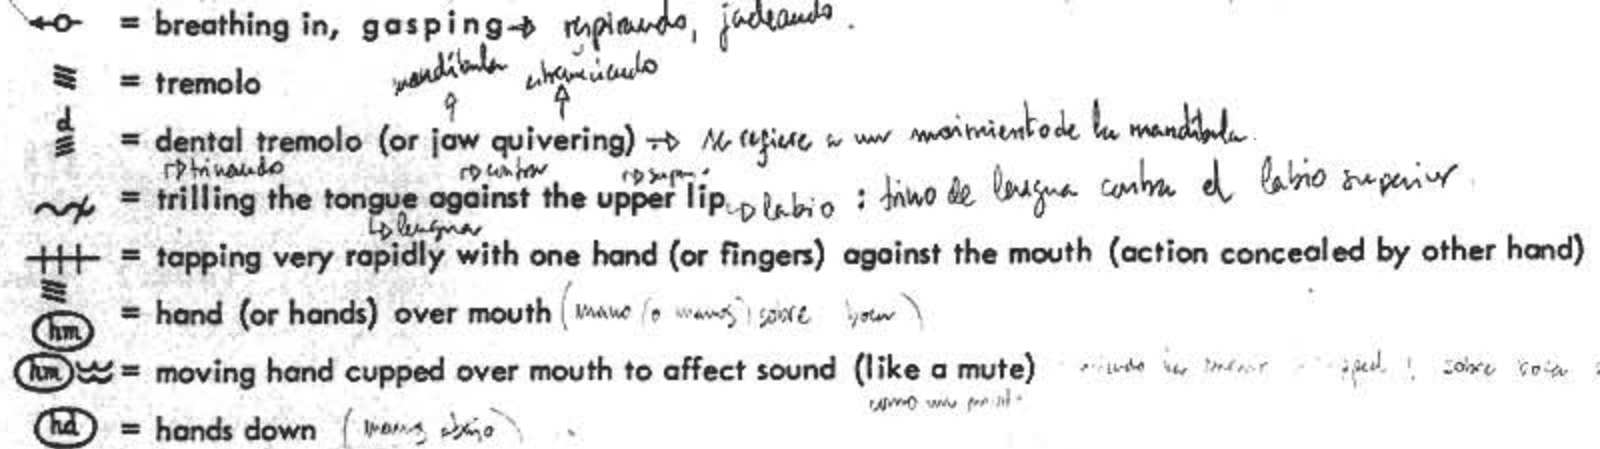 = breathing in, gasping → respirando, jadeando.
= tremolo
mandíbula
d
= dental tremolo (or jaw quivering) → se refiere a un movimiento de la mandíbula.
→ trinando → contra
= trilling the tongue against the upper lip → labio : trino de lengua contra el labio superior.
→ lengua
= tapping very rapidly with one hand (or fingers) against the mouth (action concealed by other hand)
hm = hand (or hands) over mouth (mano (o manos) sobre boca)
hm = moving hand cupped over mouth to affect sound (like a mute) sobre boca
como una
hd = hands down (manos abajo)